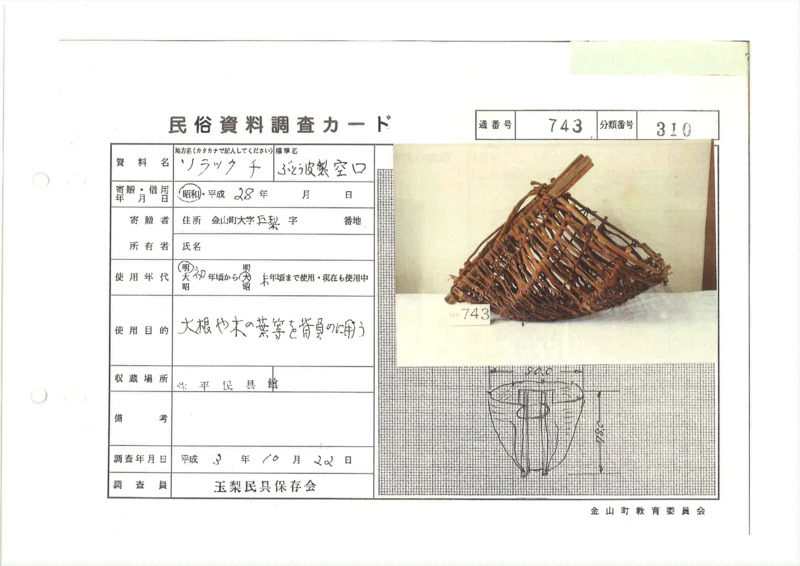 民俗資料調査カード
通番号 743 分類番号 310
資料名 地方名(カタカナで記入してください) ソラックチ 標準名 ぶどう皮製空口
寄贈・借用年月日 昭和・平成 28年 月 日
寄贈者 住所 金山町大字玉梨 字 番地
所有者 氏名
使用年代 明大昭 初年頃から 明大昭 末年頃まで使用・現在も使用中
使用目的 大根や木の葉等を背負のに用う
収蔵場所 平民具館
備考
調査年月日 平成 3年 10月 22日
調査員 玉梨民具保存会
743
金山町教育委員会